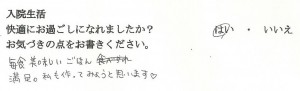 入院生活
快適にお過ごしになれましたか?
はい ・ いいえ
お気づきの点をお書きください。
毎食 美味しい ごはん
満足。私も作ってみようと思います♡